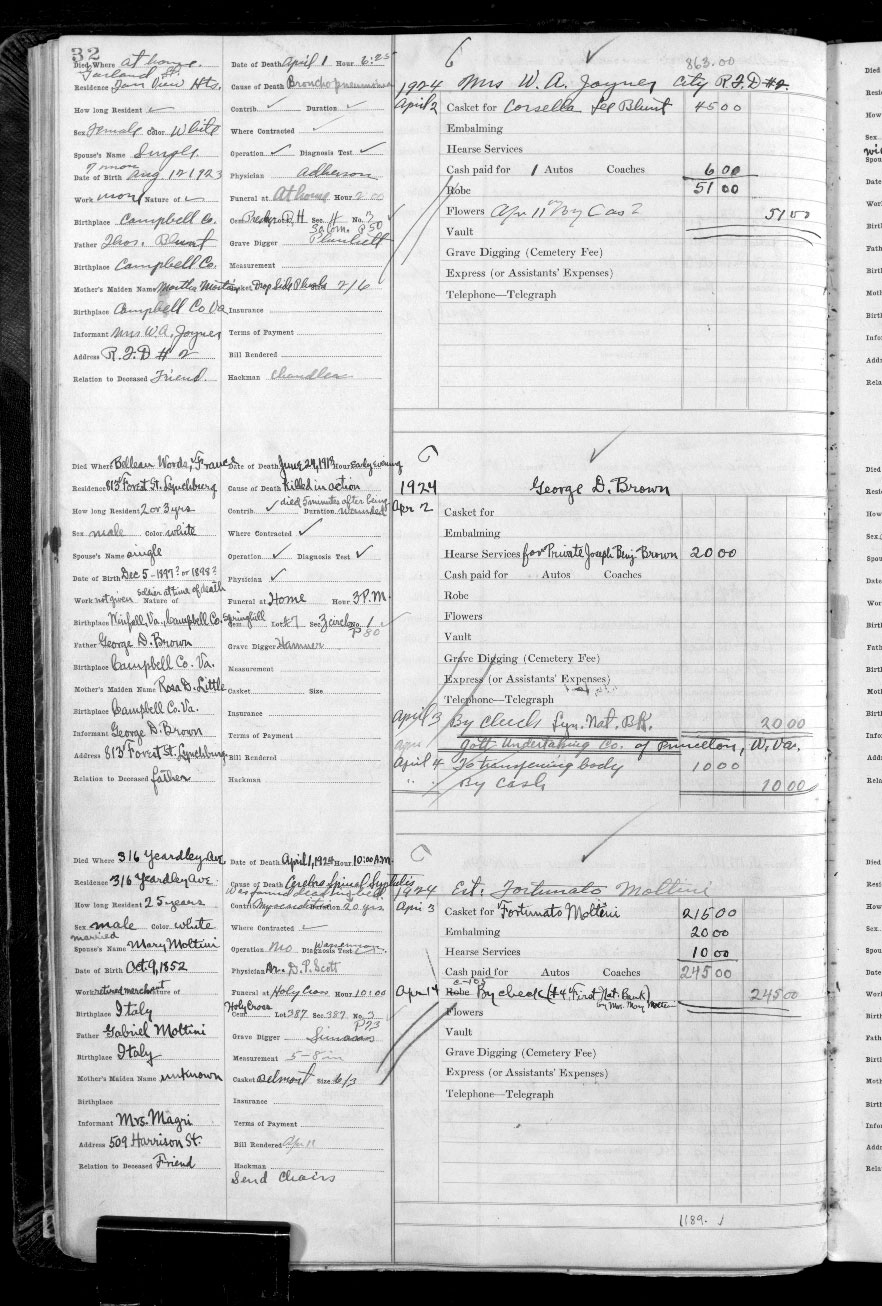 32
Died Where at home.
Garland St.
Residence Fair View Hts.
How long Resident ✓
Sex Female Color White
Spouse's Name Single
7 mon
Date of Birth Aug 12 1923
Work none Nature of ✓
Birthplace Campbell Co.
Father Thos. Blunt
Birthplace Campbell Co.
Mother's Maiden Name Martha
Birthplace Campbell Co Va
Informant Mrs W.A. Joyner
Address R.F.D # 2
Relation to Deceased Friend.
Date of Death April 1 Hour 6:25
Cause of Death Broncho pneumonia
Contrib. ✓ Duration ✓
Where Contracted ✓
Operation ✓ Diagnosis Test ✓
Physician Adkerson
Funeral at At home Hour 2 00
Cem. Sec. H No. 3
So. Com. P 50
Grave Digger Plunkett
Measurement
Casket Drop Side Plush Size 2/6
Insurance
Terms of Payment
Bill Rendered
Hackman Chandler
863.00
1924 Mrs W. A. Joyner City R.F.D #2.
April 2 Casket for Lee Blunt 45 00
Embalming
Hearse Services
Cash paid for 1 Autos Coaches 6 00
Robe 51 00
Flowers Apr 11th By Cas 51 00
Vault
Grave Digging (Cemetery Fee)
Express (or Assistants' Expenses)
Telephone—Telegraph
Died Where Belleau Woods, France
Residence 813 Forest St. Lynchburg
How long Resident 2 or 3 yrs
Sex male Color white
Spouse's Name single
Date of Birth Dec 5 - 1897? or 1898?
soldier at time of death
Work not given Nature of
Birthplace Winfall, Va., Campbell Co.
Father George D. Brown
Birthplace Campbell Co. Va.
Mother's Maiden Name Rosa D. Little
Birthplace Campbell Co. Va.
Informant George D. Brown
Address 813 Forest St. Lynchburg
Relation to Deceased father
Date of Death June 24, 1918 Hour Early Evening
Cause of Death Killed in action
died 5 minutes after being
Contrib. ✓ Duration wounded
Where Contracted ✓
Operation ✓ Diagnosis Test ✓
Physician ✓
Funeral at Home Hour 3 P.M.
Springhill
Cem. Lot 27 Sec. 3 circle No. 1
P 80
Grave Digger Hamner
Measurement
Casket Size
Insurance
Terms of Payment
Bill Rendered
Hackman
1924 George D. Brown
Apr 2 Casket for
Embalming
Hearse Services for Private Joseph Benj. Brown 20 00
Cash paid for Autos Coaches
Robe
Flowers
Vault
Grave Digging (Cemetery Fee)
Express (or Assistants' Expenses)
Telephone—Telegraph
April 3 By Check Lyn. Nat. BK. 20 00
Gott Undertaking Co. of Princeton, W. Va.
April 4 To transfering body 10 00
" By Cash 10 00
Died Where 316 Yeardley Ave
Residence 316 Yeardley Ave.
How long Resident 25 years
Sex male Color white
married
Spouse's Name Mary Moltini
Date of Birth Oct. 9, 1852
Work retired merchant Nature of
Birthplace Italy
Father Gabriel Moltini
Birthplace Italy
Mother's Maiden Name unknown
Birthplace
Informant Mrs. Magri
Address 509 Harrison St.
Relation to Deceased Friend
Date of Death April 1, 1924 Hour 10:00 A.M.
Cause of Death Cerebro Spinal Syphilis
Was found dead in bed
Contrib. Myocarditis Duration 20 yrs
Where Contracted ✓
Operation no Wasserman Diagnosis Test
Physician Dr. D. P. Scott
Funeral at Holy Cross Hour 10:00
Holy Cross
Cem. Lot 387 Sec. 387 No. 3
P 23
Grave Digger Simmons
Measurement 5-8 in
Casket Belmont Size 6/3
Insurance
Terms of Payment
Bill Rendered Apr 11
Hackman
Send Chairs
1924 Est. Fortunato Moltini
April 3 Casket for Fortunato Moltini 215 00
Embalming 20 00
Hearse Services 10 00
Cash paid for Autos Coaches 245 00
Apr 14 Robe By check (#4 First Nat. Bank) 245 00
by Mrs. Mary Moltini
Flowers
Vault
Grave Digging (Cemetery Fee)
Express (or Assistants' Expenses)
Telephone—Telegraph
1189.